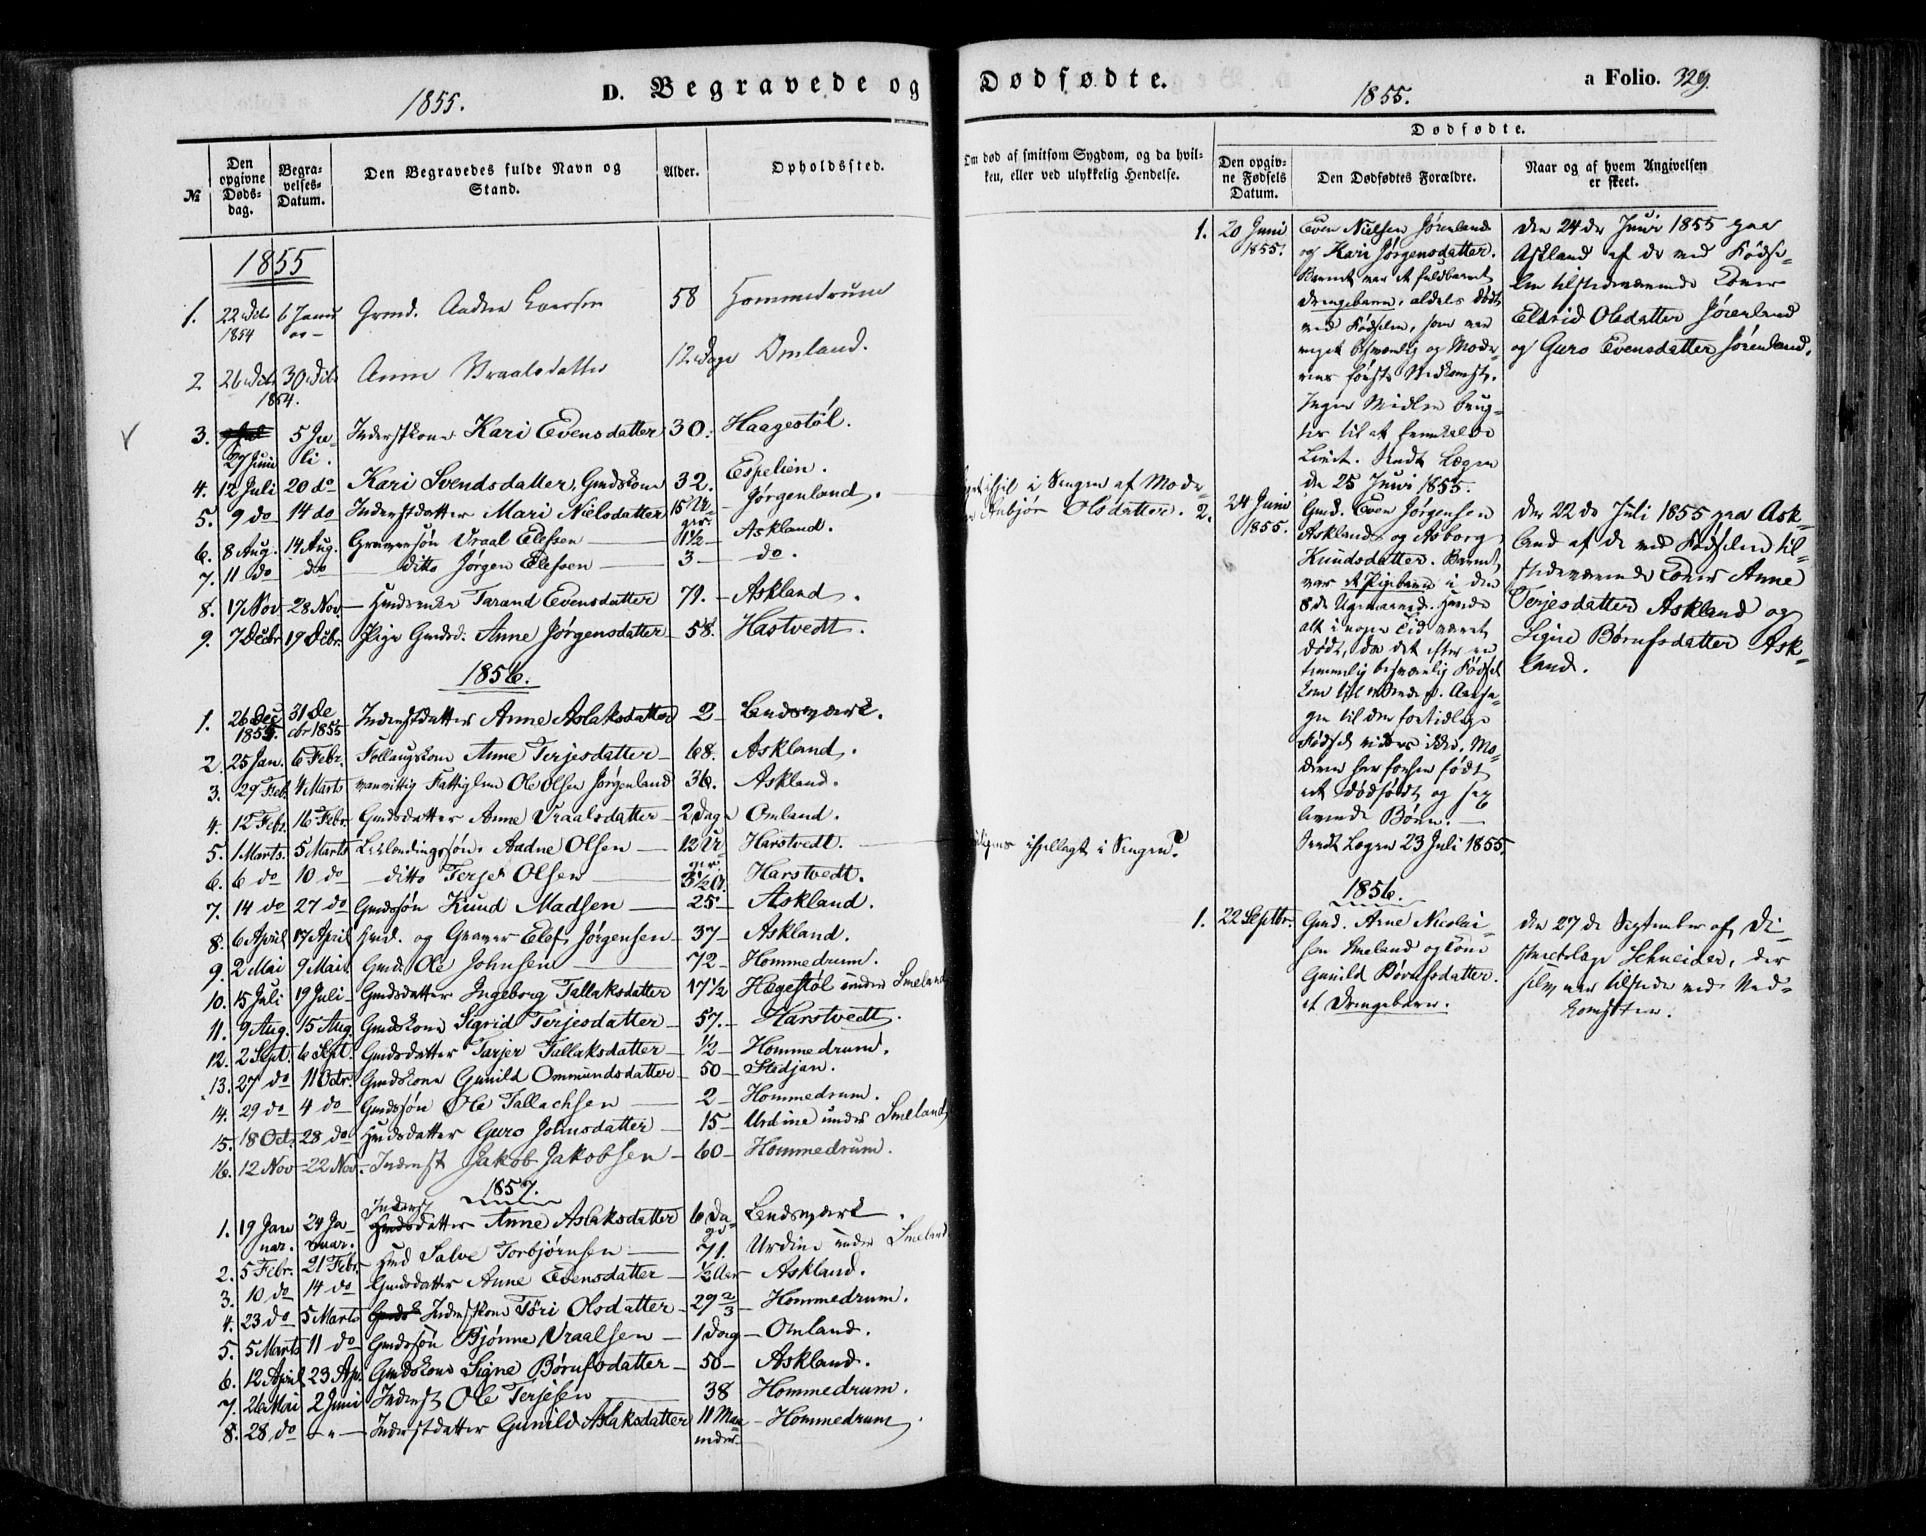 1855.
D. Begravede og Dødfødte.
1855.
a Folio. 329.
№
Den opgivne Døds-dag.
Begra-velses-Datum.
Den Begravedes fulde Navn og Stand.
Alder.
Opholdssted.
Om død af smitsom Sygdom, og da hvil-ken, eller ved ulykkelig Hendelse.
Dødfødte.
Den opgiv-ne Fødsels Datum.
Den Dødfødtes Forældre.
Naar og af hvem Angivelsen er skeet.
1855
1. 22 Dcbr 1854 6 Janu ar Gmd. Aadne 58 Hommedrum
2. 26 Dcbr 30 Dcbr 1854. Anne Vraalsdatter 12 Dage Omland.
3. 27 Juni 5 Ju-li. Inderstkone Kari Evensdatter 30. Haagestøl.
4. 12 Juli 20 do Kari Svendsdatter, Gmdskone 32. Espelien.
5. 9 do 14 do Inderstdatter Mari Nielsdatter 15 U-ger. Jørgenland.
6. 8 Aug. 14 Aug. Graversøn Vraal Elefsen 1½ Askland.
7. 11 do do ditto Jørgen Elefsen 3 do.
8. 17 Nov 28 Nov. Tarand Evensdatter 79. Askland.
9. 7 Decbr 19 Decbr. Pige Gmdsd. Anne Jørgensdatter 58. Hastvedt.
1856.
1. 26 Dec 1855. 31 De cbr 1855 Inderstdatter Anne Aslaksdatter 2 Lendsværk.
2. 25 Jan. 6 Febr. Follaugskone Anne Terjesdatter 68. Askland.
3. 29 Feb. 4 Marts vanvittig Fattiglem Ole Olsen Jørgenland 36. Askland.
4. 12 Febr. 16 Febr. Gmdsdatter Anne Vraalsdatter 2 Dage Omland.
5. 1 Marts. 5 Marts Leilændingssøn Aadne Olsen 12 U-ger. Harstvedt.
6. 6 do 10 do ditto Terje Olsen 3½ A. Harstvedt.
7. 14 do 27 do Gmdssøn Knud Madsen 25 Askland.
8. 6 April 17 April Hmd. og Graver Elef Jørgensen 37 Askland.
9. 2 Mai 9 Mai Gmd. Ole Johnsen 72 Hommedrum.
10. 15 Juli 19 Juli Gmdsdatter Ingeborg Tallaksdatter 17½ Hægestøl under Smeland
11. 9 Aug. 15 Aug. Gmdskone Sigrid Terjesdatter 57. Harstvedt.
12. 2 Sept. 6 Sept. Gmdsdatter Tarjer Tallaksdatter ½ Hommedrum.
13. 27 do 11 Octr. Gmdskone Gunild Ommundsdatter 50 Stedjan.
14. 29 do 4 do Gmdssøn Ole Tallachsen 2 Hommedrum.
15. 18 Oct. 28 do Hmdsdatter Guro Johnsdatter 15 Urdine under Smeland
16. 12 Nov 22 Nov. Inderst Jakob Jakobsen 60 Hommedrum.
1857.
1. 19 Janu nar. 24 Ja-nuar. Inderst Hmdsdatter Anne Aslaksdatter 6 Da-ge Lendsværk.
2. 5 Febr. 21 Febr. Hmd Salve Torbjørnsen 71. Urdine under Smeland
3. 10 do 14 do Gmdsdatter Anne Evensdatter ½ Aar Askland.
4. 23 do 5 Marts Inderstkone Tøri Olsdatter 29 2/3 Hommedrum.
5. 5 Marts 11 do Gmdssøn Bjønne Vraalsen 1 Dag Omland.
6. 12 April 23 Ap. Gmdskone Signe Børufsdatter 50 Askland.
7. 26 Mai 2 Juni Inderst Ole Terjesen 38 Hommedrum.
8. 28 do " Inderstdatter Gunild Aslaksdatter 11 Maa-neder Hommedrum.
ihjel i Sengen af Mode-
Anbjør Olsdatter.
ihjellagt i Sengen?
1. 20 Juni 1855.
Even Nielsen Jørenland
og Kari Jørgensdatter.
Barnet var et fuldbaaret
Drengebarn, aldeles dødt
ved Fødselen, som var
meget besværlig og Mode-
rens første Nedkomst.
Ingen Midler brug-
tes til at fremkalde
Livet. Sendt Lægen
den 25 Juni 1855.
Den 24de Juni 1855 paa
Askland af de ved Fødse-
len tilstedeværende Koner
Eldrid Olsdatter Jørenland
og Guro Evensdatter Jørenland.
2. 24 Juni 1855.
Gmd. Even Jørgensen
Askland og Asborg
Knudsdatter. Barnet
var et Pigebarn i den
8de Ugemaaned. Havde
alt i nogen Tid været
dødt, da det efter en
temmelig besværlig Fødsel
kom til Verden. Aarsa-
gen til den fortidlige
Fødsel vides ikke. Mo-
deren har forhen født
et dødfødt og sex
levende Børn.
Sendt Lægen 23 Juli 1855.
Den 22de Juli 1855 paa Ask-
land af de ved Fødselen til-
stedeværende Koner Anne
Terjesdatter Askland og
Signe Børufsdatter Ask-
land.
1856.
1. 22 Septbr.
Gmd. Arne Nicolai-
sen Smeland og Kone
Gunild Børufsdatter.
et Drengebarn.
Den 27de September af Di-
striktslæge Schneider, der
selv var tilstede ved Ned-
komsten.